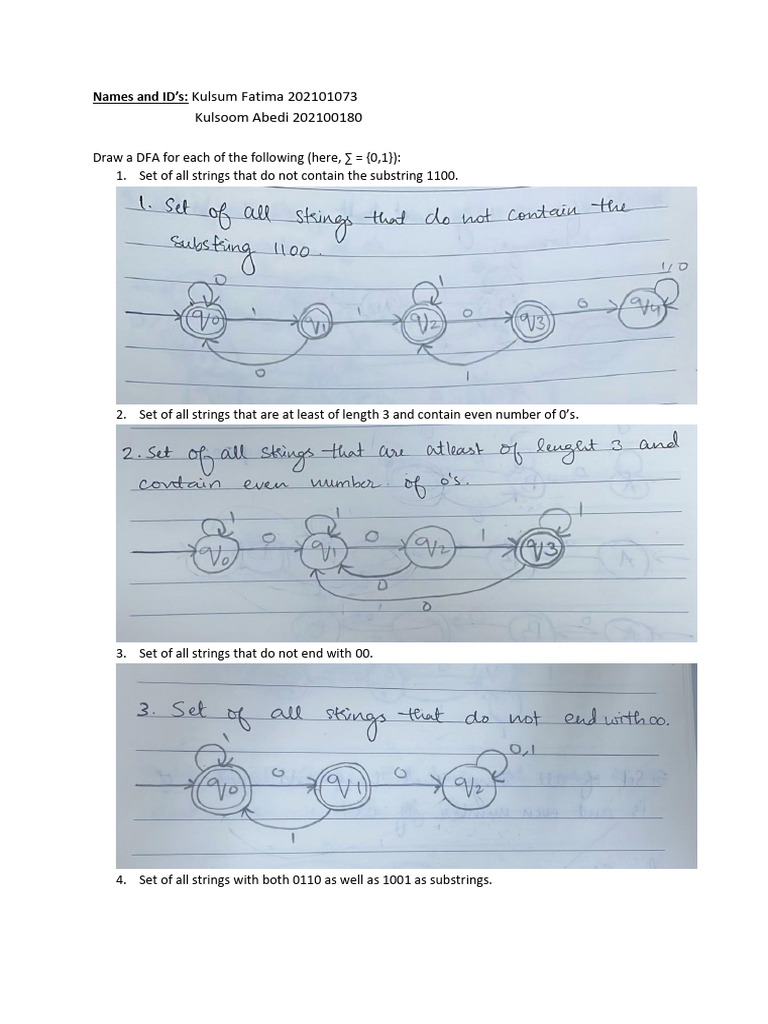 Names and ID's: Kulsum Fatima 202101073
Kulsoom Abedi 202100180
Draw a DFA for each of the following (here, ∑ = {0,1}):
1. Set of all strings that do not contain the substring 1100.
1. Set of all strings that do not contain the
substring 1100.
0 1 1 1 0 0 1,0
q0 q1 q2 q3 q4
0 1
2. Set of all strings that are at least of length 3 and contain even number of 0's.
2. Set of all strings that are atleast of lenght 3 and
contain even number of 0's.
1 0 1 0 1 1
q0 q1 q2 q3
0
0
3. Set of all strings that do not end with 00.
3. Set of all strings that do not end with 00.
1 0 0 0,1
q0 q1 q2
1
4. Set of all strings with both 0110 as well as 1001 as substrings.